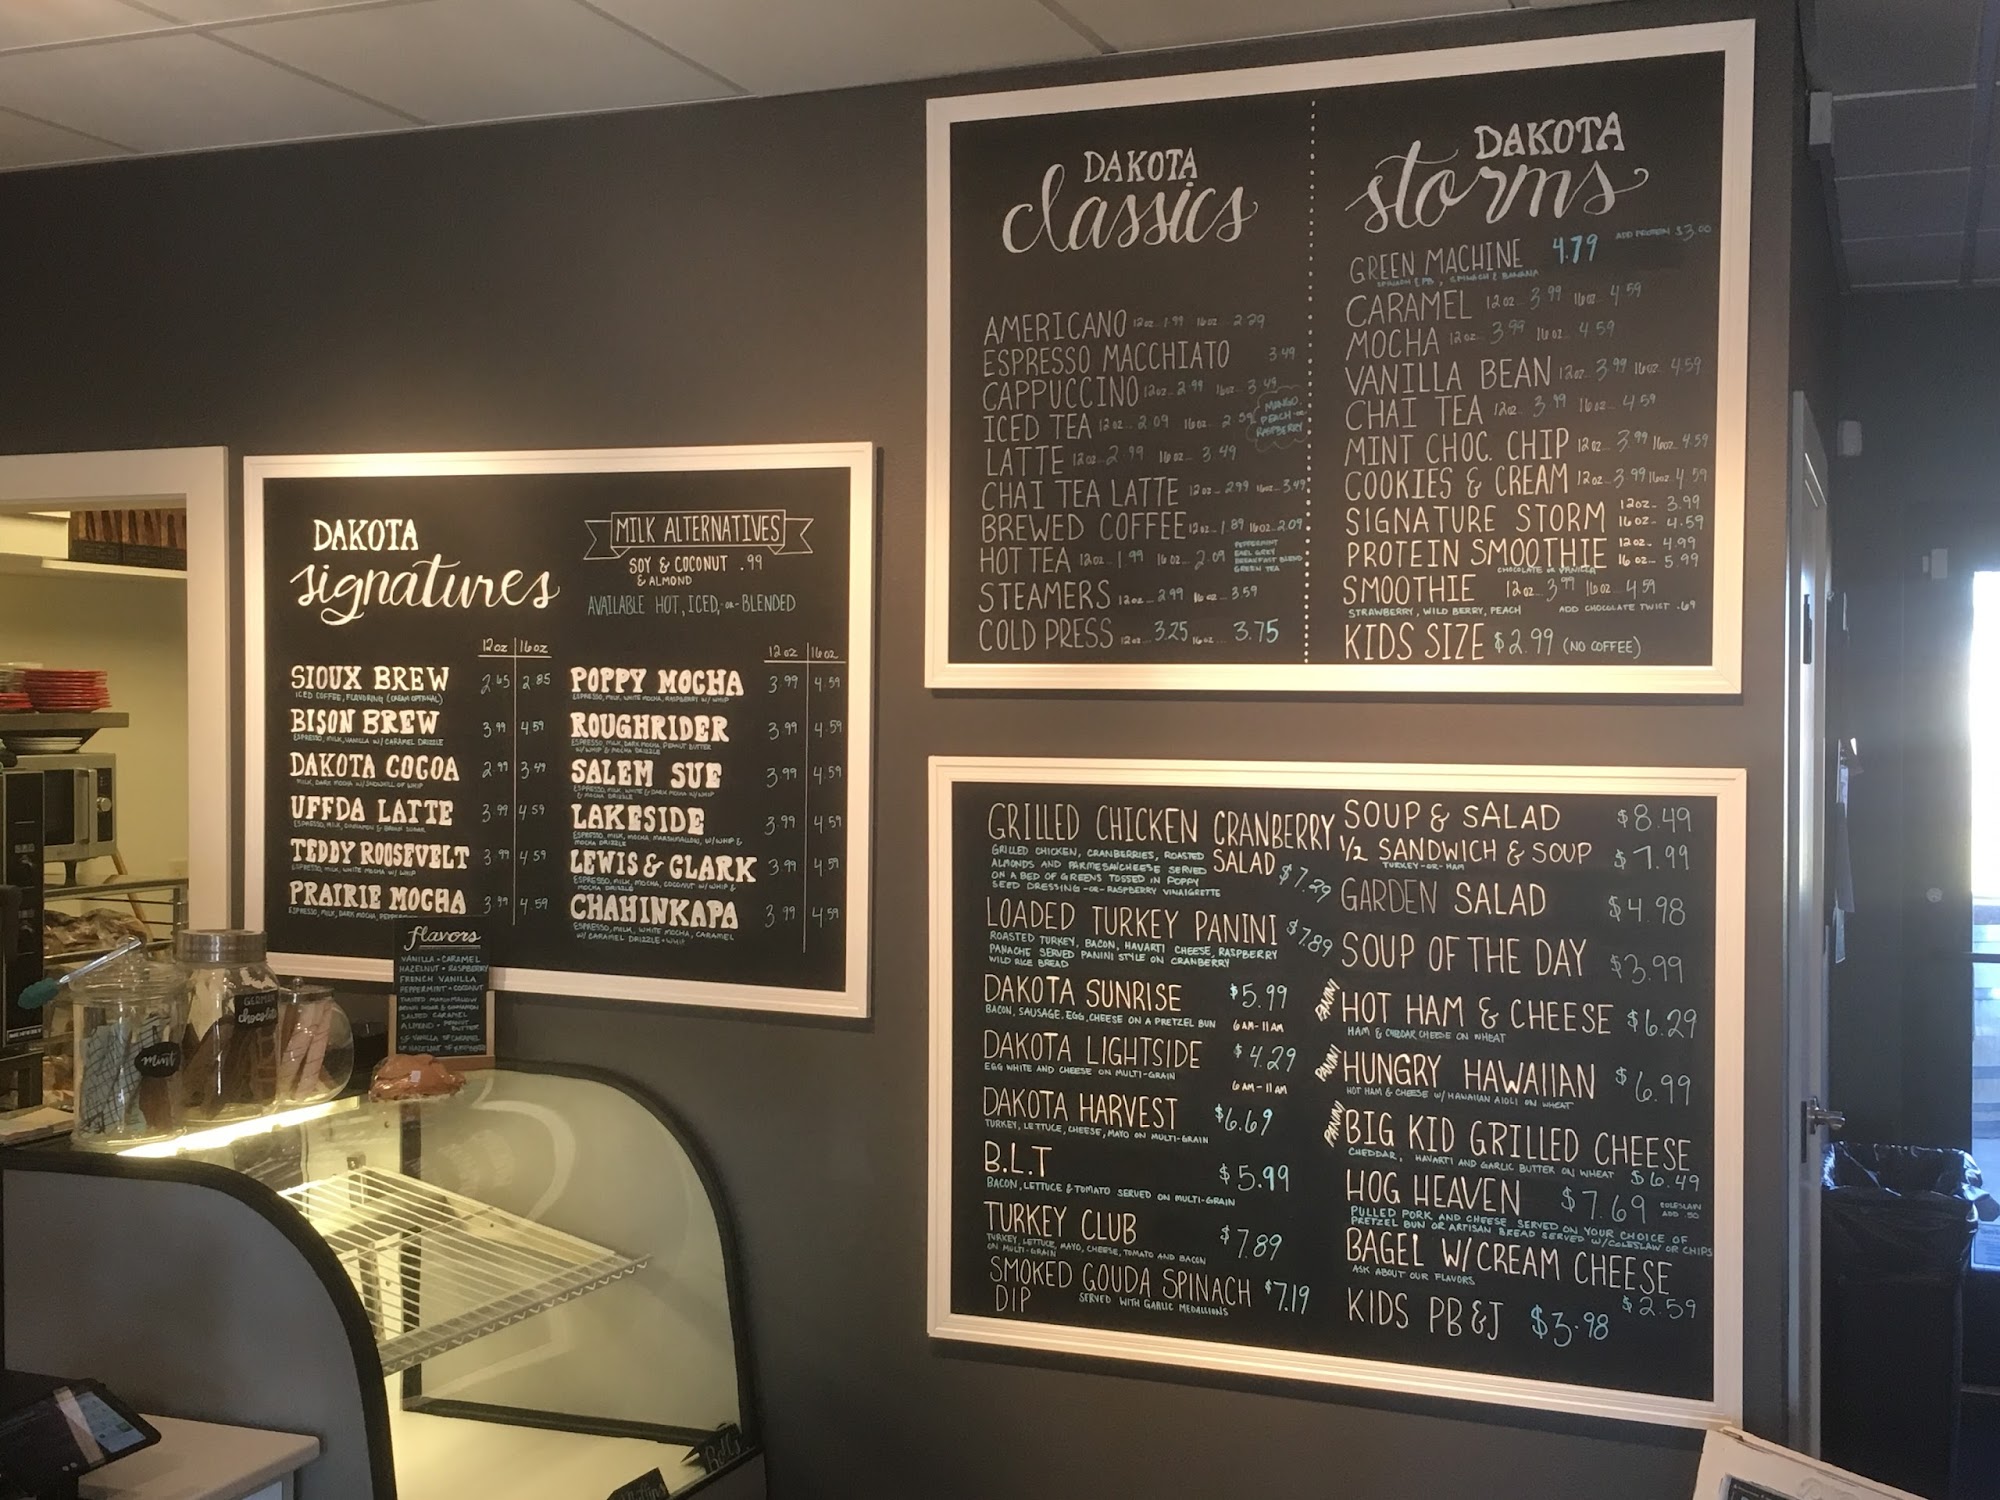 DAKOTA
signatures
MILK ALTERNATIVES
SOY & COCONUT .99
& ALMOND
AVAILABLE HOT, ICED, -OR- BLENDED
12oz 16oz
SIOUX BREW 2.65 2.85
ICED COFFEE, FLAVORING (CREAM OPTIONAL)
BISON BREW 3.99 4.59
ESPRESSO, MILK, VANILLA W/ CARAMEL DRIZZLE
DAKOTA COCOA 2.99 3.49
MILK, DARK MOCHA W/ SNOWHILL OF WHIP
UFFDA LATTE 3.99 4.59
ESPRESSO, MILK, CINNAMON & BROWN SUGAR
TEDDY ROOSEVELT 3.99 4.59
ESPRESSO, MILK, WHITE MOCHA W/ WHIP
PRAIRIE MOCHA 3.99 4.59
ESPRESSO, MILK, DARK MOCHA,
12oz 16oz
POPPY MOCHA 3.99 4.59
ESPRESSO, MILK, WHITE MOCHA, RASPBERRY W/ WHIP
ROUGHRIDER 3.99 4.59
ESPRESSO, MILK, DARK MOCHA, PEANUT BUTTER
W/ WHIP & MOCHA DRIZZLE
SALEM SUE 3.99 4.59
ESPRESSO, MILK, WHITE & DARK MOCHA W/ WHIP
& MOCHA DRIZZLE
LAKESIDE 3.99 4.59
ESPRESSO, MILK, MOCHA, MARSHMALLOW, W/ WHIP &
MOCHA DRIZZLE
LEWIS & CLARK 3.99 4.59
ESPRESSO, MILK, MOCHA, COCONUT W/ WHIP &
MOCHA DRIZZLE
CHAHINKAPA 3.99 4.59
ESPRESSO, MILK, WHITE MOCHA, CARAMEL
W/ CARAMEL DRIZZLE + WHIP
flavors
VANILLA • CARAMEL
HAZELNUT • RASPBERRY
FRENCH VANILLA
PEPPERMINT • COCONUT
TOASTED MARSHMALLOW
BROWN SUGAR & CINNAMON
SALTED CARAMEL
ALMOND • PEANUT
BUTTER
SF VANILLA SF CARAMEL
SF HAZELNUT
GERMAN
chocolate
mint
DAKOTA
classics
AMERICANO 12oz... 1.99 16oz... 2.29
ESPRESSO MACCHIATO 3.49
CAPPUCCINO 12oz... 2.99 16oz... 3.49
ICED TEA 12oz... 2.09 16oz... 2.59
MANGO,
PEACH -OR-
RASPBERRY
LATTE 12oz... 2.99 16oz... 3.49
CHAI TEA LATTE 12oz... 2.99 16oz... 3.49
BREWED COFFEE 12oz... 1.89 16oz... 2.09
HOT TEA 12oz... 1.99 16oz... 2.09
PEPPERMINT
EARL GREY
BREAKFAST BLEND
GREEN TEA
STEAMERS 12oz... 2.99 16oz... 3.59
COLD PRESS 12oz... 3.25 16oz... 3.75
DAKOTA
storms
GREEN MACHINE 4.79 ADD PROTEIN $3.00
SPINACH & PB, SPINACH & BANANA
CARAMEL 12oz... 3.99 16oz... 4.59
MOCHA 12oz... 3.99 16oz... 4.59
VANILLA BEAN 12oz... 3.99 16oz... 4.59
CHAI TEA 12oz... 3.99 16oz... 4.59
MINT CHOC. CHIP 12oz... 3.99 16oz... 4.59
COOKIES & CREAM 12oz... 3.99 16oz... 4.59
SIGNATURE STORM 12oz- 3.99
16oz- 4.59
PROTEIN SMOOTHIE 12oz- 4.99
16oz- 5.99
CHOCOLATE or VANILLA
SMOOTHIE 12oz... 3.99 16oz... 4.59
STRAWBERRY, WILD BERRY, PEACH ADD CHOCOLATE TWIST .69
KIDS SIZE $2.99 (NO COFFEE)
GRILLED CHICKEN CRANBERRY
SALAD $7.29
GRILLED CHICKEN, CRANBERRIES, ROASTED
ALMONDS AND PARMESAN CHEESE SERVED
ON A BED OF GREENS TOSSED IN POPPY
SEED DRESSING -OR- RASPBERRY VINAIGRETTE
LOADED TURKEY PANINI $7.89
ROASTED TURKEY, BACON, HAVARTI CHEESE, RASPBERRY
PANACHE SERVED PANINI STYLE ON CRANBERRY
WILD RICE BREAD
DAKOTA SUNRISE $5.99
BACON, SAUSAGE, EGG, CHEESE ON A PRETZEL BUN 6AM-11AM
DAKOTA LIGHTSIDE $4.29
EGG WHITE AND CHEESE ON MULTI-GRAIN 6AM-11AM
DAKOTA HARVEST $6.69
TURKEY, LETTUCE, CHEESE, MAYO ON MULTI-GRAIN
B.L.T $5.99
BACON, LETTUCE & TOMATO SERVED ON MULTI-GRAIN
TURKEY CLUB $7.89
TURKEY, LETTUCE, MAYO, CHEESE, TOMATO AND BACON
ON MULTI-GRAIN
SMOKED GOUDA SPINACH $7.19
DIP SERVED WITH GARLIC MEDALLIONS
SOUP & SALAD $8.49
1/2 SANDWICH & SOUP $7.99
TURKEY -OR- HAM
GARDEN SALAD $4.98
SOUP OF THE DAY $3.99
PANINI HOT HAM & CHEESE $6.29
HAM & CHEDDAR CHEESE ON WHEAT
PANINI HUNGRY HAWAIIAN $6.99
HOT HAM & CHEESE W/ HAWAIIAN AIOLI ON WHEAT
PANINI BIG KID GRILLED CHEESE
CHEDDAR, HAVARTI AND GARLIC BUTTER ON WHEAT $6.49
HOG HEAVEN $7.69 COLESLAW
ADD .50
PULLED PORK AND CHEESE SERVED ON YOUR CHOICE OF
PRETZEL BUN OR ARTISAN BREAD SERVED W/COLESLAW OR CHIPS
BAGEL W/CREAM CHEESE
ASK ABOUT OUR FLAVORS $2.59
KIDS PB&J $3.98
Rolls
Muffins